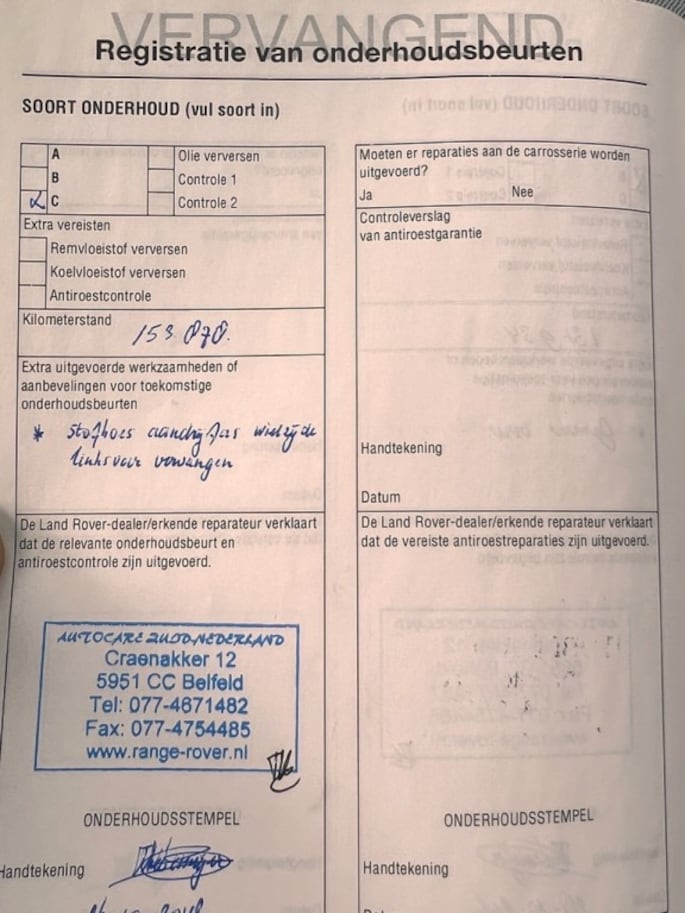 VERVANGEND
Registratie van onderhoudsbeurten
SOORT ONDERHOUD (vul soort in)
A
Olie verversen
B
Controle 1
C
Controle 2
Extra vereisten
Remvloeistof verversen
Koelvloeistof verversen
Antiroestcontrole
Kilometerstand
153.070.
Extra uitgevoerde werkzaamheden of
aanbevelingen voor toekomstige
onderhoudsbeurten
* stofhoes aandrijfas wielzijde
linksvoor vervangen
De Land Rover-dealer/erkende reparateur verklaart
dat de relevante onderhoudsbeurt en
antiroestcontrole zijn uitgevoerd.
AUTOCARE ZUID-NEDERLAND
Craenakker 12
5951 CC Belfeld
Tel: 077-4671482
Fax: 077-4754485
www.range-rover.nl
ONDERHOUDSSTEMPEL
Handtekening
Moeten er reparaties aan de carrosserie worden
uitgevoerd?
Ja Nee
Controleverslag
van antiroestgarantie
Handtekening
Datum
De Land Rover-dealer/erkende reparateur verklaart
dat de vereiste antiroestreparaties zijn uitgevoerd.
ONDERHOUDSSTEMPEL
Handtekening